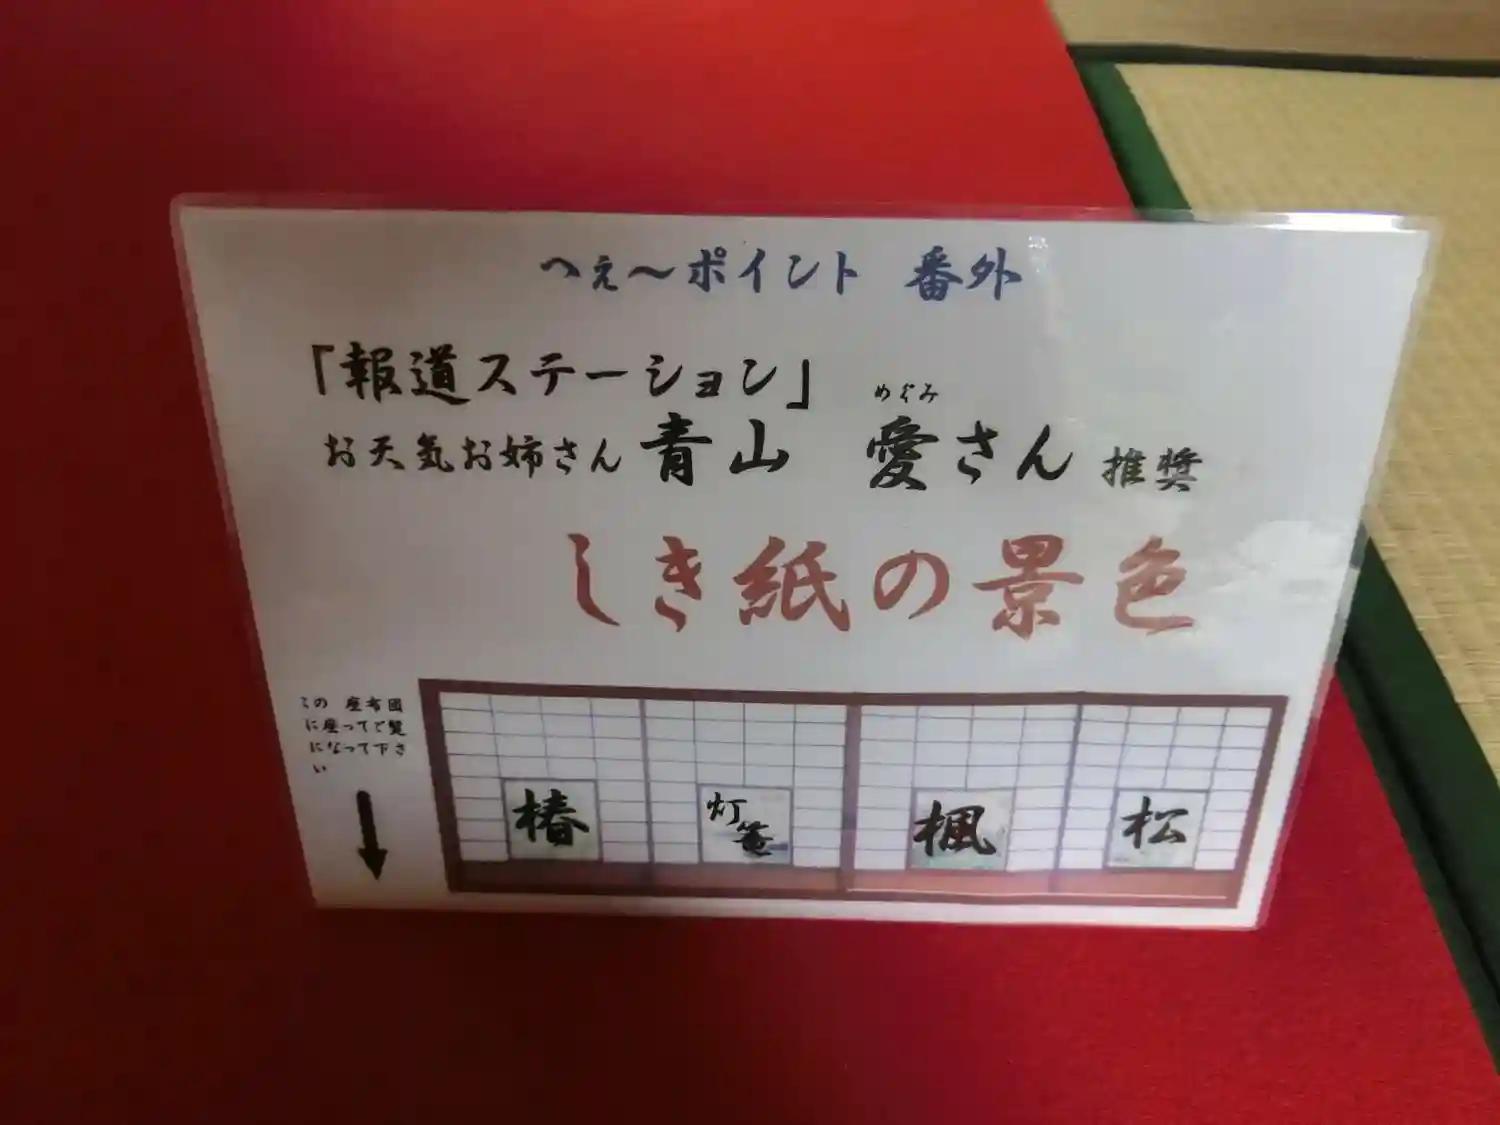 へぇ～ポイント 番外
「報道ステーション」
めぐみ
お天気お姉さん 青山 愛さん 推奨
しき紙の景色
この 座布団
に座ってご覧
になって下さ
い
椿 灯篭 楓 松